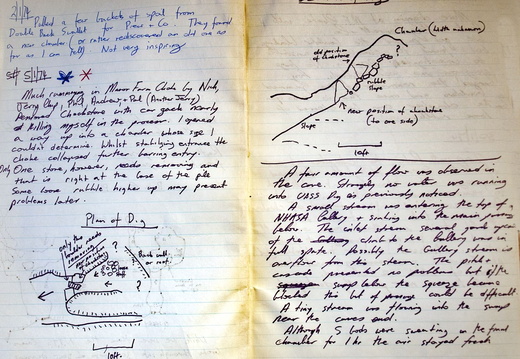 2/1/74
Pulled a few buckets of spoil from
Double Back Squeeze for Pres + Co. They found
a new chamber (or rather rediscovered an old one as
far as I can tell) Not very inspiring
Sat 5/1/74
Much removing in Manor Farm Choke by Nick,
Jerry, Clay, Phil, Andrew, + Paul (Another Jerry)
Removed Chockstone with car jack nearly
killing myself in the process. I opened
a way up into a chamber whose size I
couldn't determine. Whilst stabilising entrance the
choke collapsed further barring entry.
Only One stone, however, needs removing and
that is right at the base of the pile
Some loose rubble higher up may present
problems later.
Plan of Dig
only this
boulder needs
removing
?
Back wall
or roof
?
10ft
Chamber (Width unknown)
?
old position
of chockstone
rubble
slope
new position of chockstone
(to one side)
Slope
10ft
A fair amount of flow was observed in
the cave. Strangely no water was running
into UBSS Dig as previously noticed.
A small stream was entering the top of
NHASA Gallery + sinking into the main passage
below. The inlet stream several yards
of the climb to the Gallery was in
full spate. Possibly the Gallery stream is
overflow from this stream. The
cascade presented no problems but if the
sump below the squeeze became
blocked this bit of passage could be difficult
A tiny stream was flowing into the sump
near the caves end.
Although 5 bods were sweating in the final
chamber for 1 hr the air stayed fresh